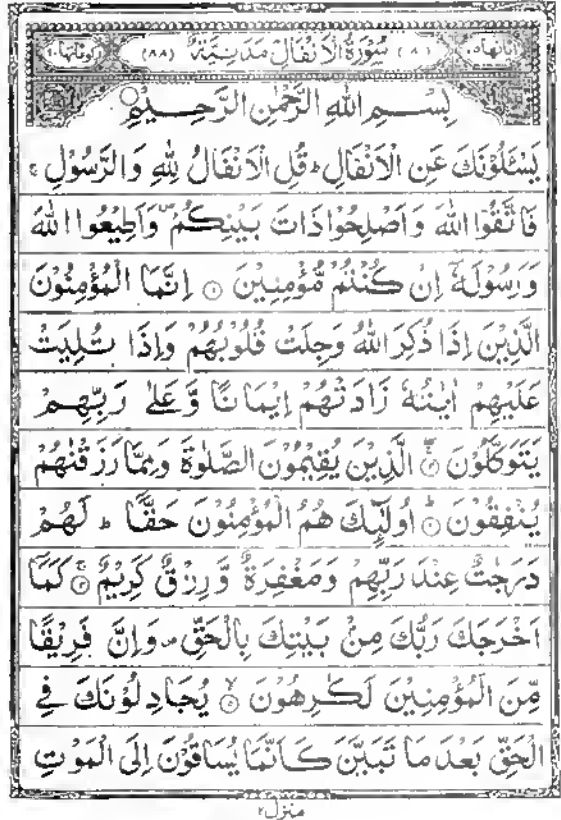 اٰیَاتُهَا ٧٥ (٨) سُوْرَةُ الْاَنْفَالِ مَدَنِيَّةٌ (٨٨) رُكُوْعَاتُهَا ١٠
بِسْمِ اللهِ الرَّحْمٰنِ الرَّحِيْمِ
يَسْـَٔلُوْنَكَ عَنِ الْاَنْفَالِ ؕ قُلِ الْاَنْفَالُ لِلّٰهِ وَالرَّسُوْلِ ۚ
فَاتَّقُوا اللهَ وَاَصْلِحُوْا ذَاتَ بَيْنِكُمْ ۪ وَاَطِيْعُوا اللهَ
وَرَسُوْلَهٗۤ اِنْ كُنْتُمْ مُّؤْمِنِيْنَ ① اِنَّمَا الْمُؤْمِنُوْنَ
الَّذِيْنَ اِذَا ذُكِرَ اللهُ وَجِلَتْ قُلُوْبُهُمْ وَاِذَا تُلِيَتْ
عَلَيْهِمْ اٰيٰتُهٗ زَادَتْهُمْ اِيْمَانًا وَّعَلٰى رَبِّهِمْ
يَتَوَكَّلُوْنَ ② الَّذِيْنَ يُقِيْمُوْنَ الصَّلٰوةَ وَمِمَّا رَزَقْنٰهُمْ
يُنْفِقُوْنَ ③ اُولٰٓئِكَ هُمُ الْمُؤْمِنُوْنَ حَقًّا ؕ لَهُمْ
دَرَجٰتٌ عِنْدَ رَبِّهِمْ وَمَغْفِرَةٌ وَّرِزْقٌ كَرِيْمٌ ④ كَمَاۤ
اَخْرَجَكَ رَبُّكَ مِنْۢ بَيْتِكَ بِالْحَقِّ ۪ وَاِنَّ فَرِيْقًا
مِّنَ الْمُؤْمِنِيْنَ لَكٰرِهُوْنَ ⑤ يُجَادِلُوْنَكَ فِي
الْحَقِّ بَعْدَ مَا تَبَيَّنَ كَاَنَّمَا يُسَاقُوْنَ اِلَى الْمَوْتِ
منزل ٢